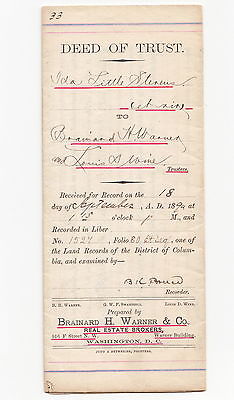 33
DEED OF TRUST.
Ida Little Stevens
et vir
TO
Brainard H. Warner
and Louis D. Wine
Trustees.
Received for Record on the 18
day of September, A. D. 189 at
o'clock P M., and
Recorded in Liber
No. 1527, Folio et seq., one of
the Land Records of the District of Colum-
bia, and examined by
Recorder.
B. H. WARNER. G. W. F. SWARTZELL. LOUIS D. WINE.
Prepared by
BRAINARD H. WARNER & CO.
REAL ESTATE BROKERS,
916 F Street N. W. Warner Building.
WASHINGTON, D. C.
JUDD & DETWEILER, PRINTERS.